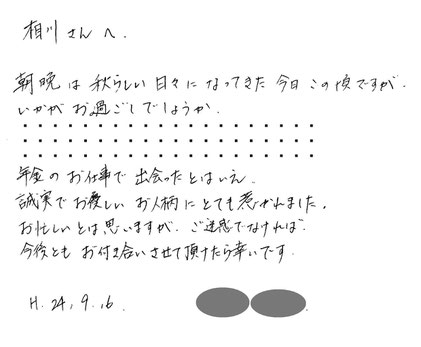 相川さんへ.
朝晩は秋らしい日々になってきた今日この頃ですが.
いかがお過ごしでしょうか.
年金のお仕事で出会ったとはいえ.
誠実でお優しいお人柄にとても惹かれました。
お忙しいとは思いますが.ご迷惑でなければ.
今後ともお付き合いさせて頂けたら幸いです.
H.24,9.16.